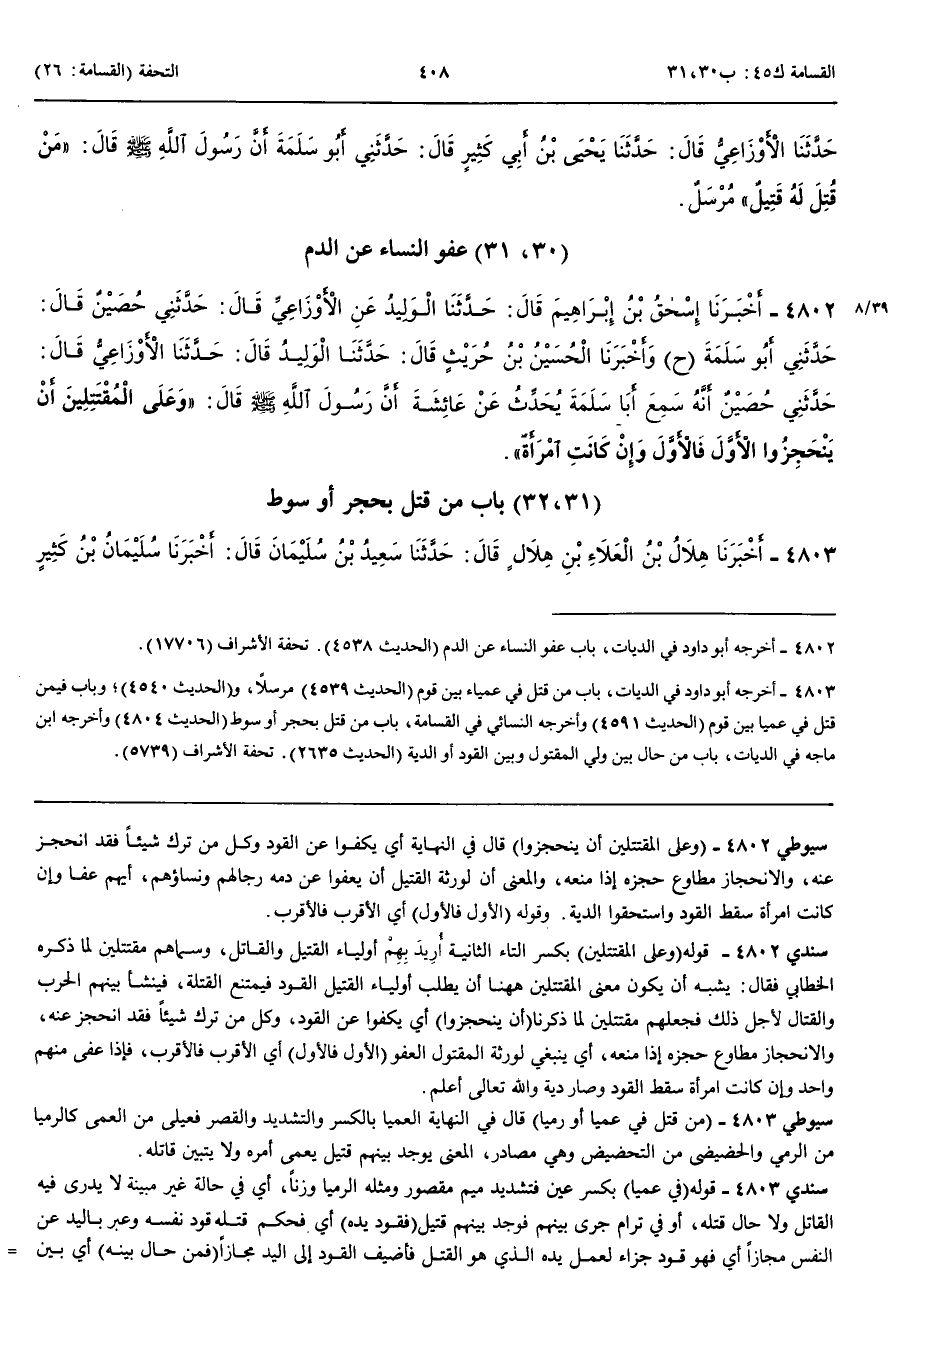 القسامة ك٤٥: ب٣٠، ٣١ ٤٠٨ التحفة (القسامة: ٢٦)
حَدَّثَنَا الْأَوْزَاعِيُّ قَالَ: حَدَّثَنَا يَحْيَى بْنُ أَبِي كَثِيرٍ قَالَ: حَدَّثَنِي أَبُو سَلَمَةَ أَنَّ رَسُولَ ٱللَّهِ ﷺ قَالَ: «مَنْ
قُتِلَ لَهُ قَتِيلٌ» مُرْسَلٌ.
(٣٠، ٣١) عفو النساء عن الدم
٨/٣٩ ٤٨٠٢ ـ أَخْبَرَنَا إِسْحٰقُ بْنُ إِبْرَاهِيمَ قَالَ: حَدَّثَنَا الْوَلِيدُ عَنِ الْأَوْزَاعِيِّ قَالَ: حَدَّثَنِي حُصَيْنٌ قَالَ:
حَدَّثَنِي أَبُو سَلَمَةَ (ح) وَأَخْبَرَنَا الْحُسَيْنُ بْنُ حُرَيْثٍ قَالَ: حَدَّثَنَا الْوَلِيدُ قَالَ: حَدَّثَنَا الْأَوْزَاعِيُّ قَالَ:
حَدَّثَنِي حُصَيْنٌ أَنَّهُ سَمِعَ أَبَا سَلَمَةَ يُحَدِّثُ عَنْ عَائِشَةَ أَنَّ رَسُولَ اللَّهِ ﷺ قَالَ: «وَعَلَى الْمُقْتَتِلِينَ أَنْ
يَنْحَجِزُوا الْأَوَّلَ فَالْأَوَّلَ وَإِنْ كَانَتِ ٱمْرَأَةٌ».
(٣١، ٣٢) باب من قتل بحجر أو سوط
٤٨٠٣ ـ أَخْبَرَنَا هِلَالُ بْنُ الْعَلَاءِ بْنِ هِلَالٍ قَالَ: حَدَّثَنَا سَعِيدُ بْنُ سُلَيْمَانَ قَالَ: أَخْبَرَنَا سُلَيْمَانُ بْنُ كَثِيرٍ
٤٨٠٢ ـ أخرجه أبو داود في الديات، باب عفو النساء عن الدم (الحديث ٤٥٣٨). تحفة الأشراف (١٧٧٠٦).
٤٨٠٣ ـ أخرجه أبو داود في الديات، باب من قتل في عمياء بين قوم (الحديث ٤٥٣٩) مرسلًا، و(الحديث ٤٥٤٠)؛ وباب فيمن
قتل في عميا بين قوم (الحديث ٤٥٩١) وأخرجه النسائي في القسامة، باب من قتل بحجر أو سوط (الحديث ٤٨٠٤) وأخرجه ابن
ماجه في الديات، باب من حال بين ولي المقتول وبين القود أو الدية (الحديث ٢٦٣٥). تحفة الأشراف (٥٧٣٩).
سيوطي ٤٨٠٢ ـ (وعلى المقتتلين أن ينحجزوا) قال في النهاية أي يكفوا عن القود وكل من ترك شيئاً فقد انحجز
عنه، والانحجاز مطاوع حجزه إذا منعه، والمعنى أن لورثة القتيل أن يعفوا عن دمه رجالهم ونساؤهم، أيهم عفا وإن
كانت امرأة سقط القود واستحقوا الدية. وقوله (الأول فالأول) أي الأقرب فالأقرب.
سندي ٤٨٠٢ ـ قوله(وعلى المقتتلين) بكسر التاء الثانية أُريدَ بِهِمْ أولياء القتيل والقاتل، وسماهم مقتتلين لما ذكره
الخطابي فقال: يشبه أن يكون معنى المقتتلين ههنا أن يطلب أولياء القتيل القود فيمتنع القتلة، فينشأ بينهم الحرب
والقتال لأجل ذلك فجعلهم مقتتلين لما ذكرنا(أن ينحجزوا) أي يكفوا عن القود، وكل من ترك شيئاً فقد انحجز عنه،
والانحجاز مطاوع حجزه إذا منعه، أي ينبغي لورثة المقتول العفو (الأول فالأول) أي الأقرب فالأقرب، فإذا عفى منهم
واحد وإن كانت امرأة سقط القود وصار دية والله تعالى أعلم.
سيوطي ٤٨٠٣ ـ (من قتل في عميا أو رميا) قال في النهاية العميا بالكسر والتشديد والقصر فعيلى من العمى كالرميا
من الرمي والحضيضى من التحضيض وهي مصادر، المعنى يوجد بينهم قتيل يعمى أمره ولا يتبين قاتله.
سندي ٤٨٠٣ ـ قوله(في عميا) بكسر عين فتشديد ميم مقصور ومثله الرميا وزناً، أي في حالة غير مبينة لا يدرى فيه
القاتل ولا حال قتله، أو في ترام جرى بينهم فوجد بينهم قتيل(فقود يده) أي فحكم قتله قود نفسه وعبر باليد عن
النفس مجازاً أي فهو قود جزاء لعمل يده الذي هو القتل فأضيف القود إلى اليد مجازاً(فمن حال بينه) أي بين =